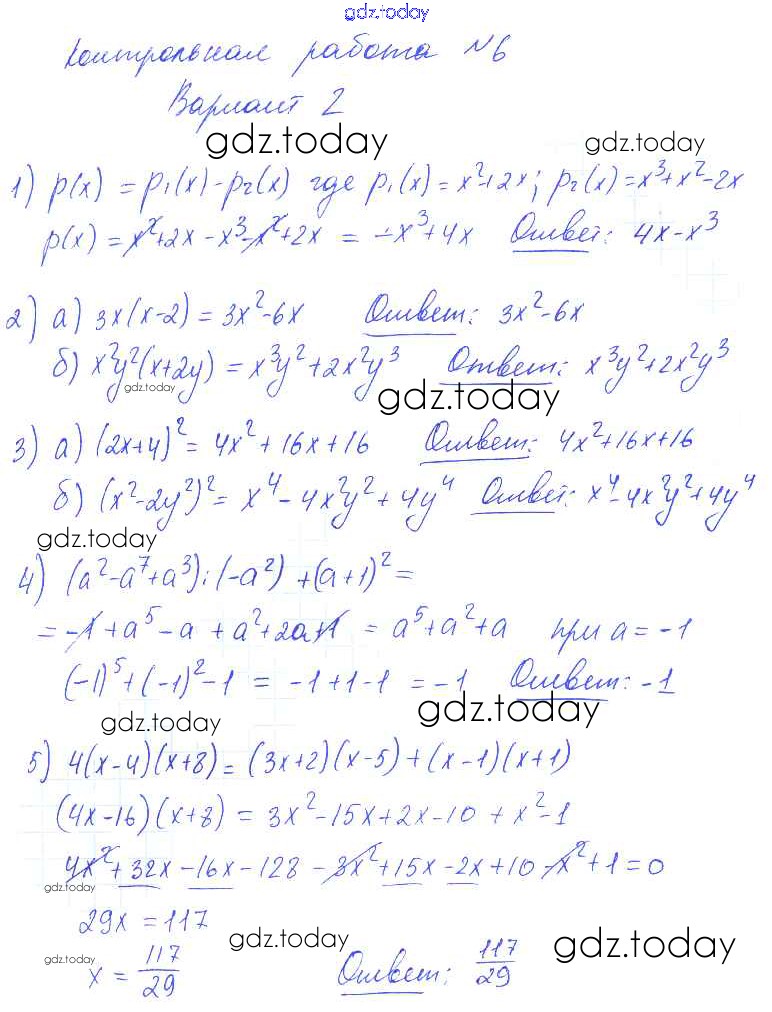 gdz.today
Контрольная работа №6
Вариант 2
gdz.today gdz.today
1) p(x) = p₁(x) - p₂(x) где p₁(x) = x² + 2x; p₂(x) = x³ + x² - 2x
p(x) = x² + 2x - x³ - x² + 2x = -x³ + 4x Ответ: 4x - x³
2) а) 3x(x-2) = 3x² - 6x Ответ: 3x² - 6x
б) x²y²(x+2y) = x³y² + 2x²y³ Ответ: x³y² + 2x²y³
gdz.today gdz.today
3) а) (2x+4)² = 4x² + 16x + 16 Ответ: 4x² + 16x + 16
б) (x² - 2y²)² = x⁴ - 4x²y² + 4y⁴ Ответ: x⁴ - 4x²y² + 4y⁴
gdz.today
4) (a² - a⁷ + a³) : (-a²) + (a+1)² =
= -1 + a⁵ - a + a² + 2a + 1 = a⁵ + a² + a при a = -1
(-1)⁵ + (-1)² - 1 = -1 + 1 - 1 = -1 Ответ: -1
gdz.today gdz.today
5) 4(x-4)(x+8) = (3x+2)(x-5) + (x-1)(x+1)
(4x-16)(x+8) = 3x² - 15x + 2x - 10 + x² - 1
4x² + 32x - 16x - 128 - 3x² + 15x - 2x + 10 - x² + 1 = 0
gdz.today
29x = 117
gdz.today gdz.today gdz.today
x = 117/29 Ответ: 117/29